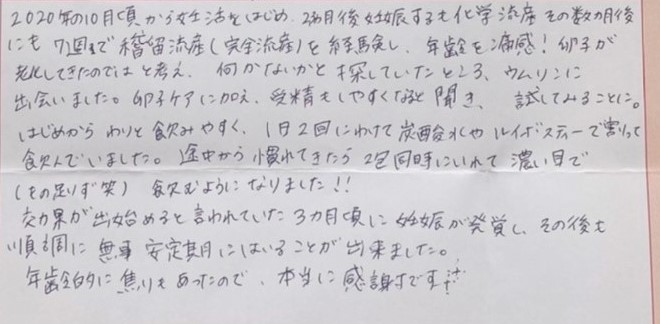 2020年の10月頃から妊活をはじめ、2ヵ月後妊娠するも化学流産その数ヵ月後
にも7週まで稽留流産(完全流産)を経験し、年齢を痛感!卵子が
老化してきたのではと考え、何かないかと探していたところ、ウムリンに
出会いました。卵子ケアに加え、受精もしやすくなると聞き、試してみることに。
はじめからわりと飲みやすく、1日2回にわけて炭酸水やルイボスティーで割って
飲んでいました。途中から慣れてきたら2包同時にいれて濃い目で
(もの足りず笑)飲むようになりました!!
効果が出始めると言われていた3ヵ月頃に妊娠が発覚し、その後も
順調に無事安定期にはいることが出来ました。
年齢的に焦りもあったので、本当に感謝です